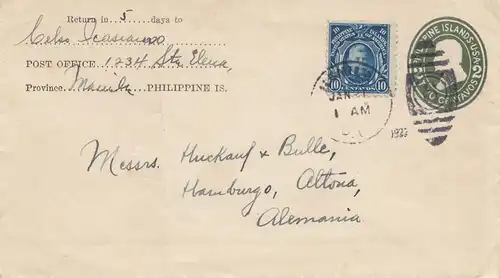 Return in 5 days to
Celso Icasiano
POST OFFICE 1234 Sta Elena,
Province. Manila PHILIPPINE IS.
10 10
10 CENTAVOS 10
PHILIPPINE ISLANDS-U.S.A.
CENTAVOS
JAN
1 AM
192
Messrs. Huckauf & Bulle,
Hamburgo, Altona,
Alemania